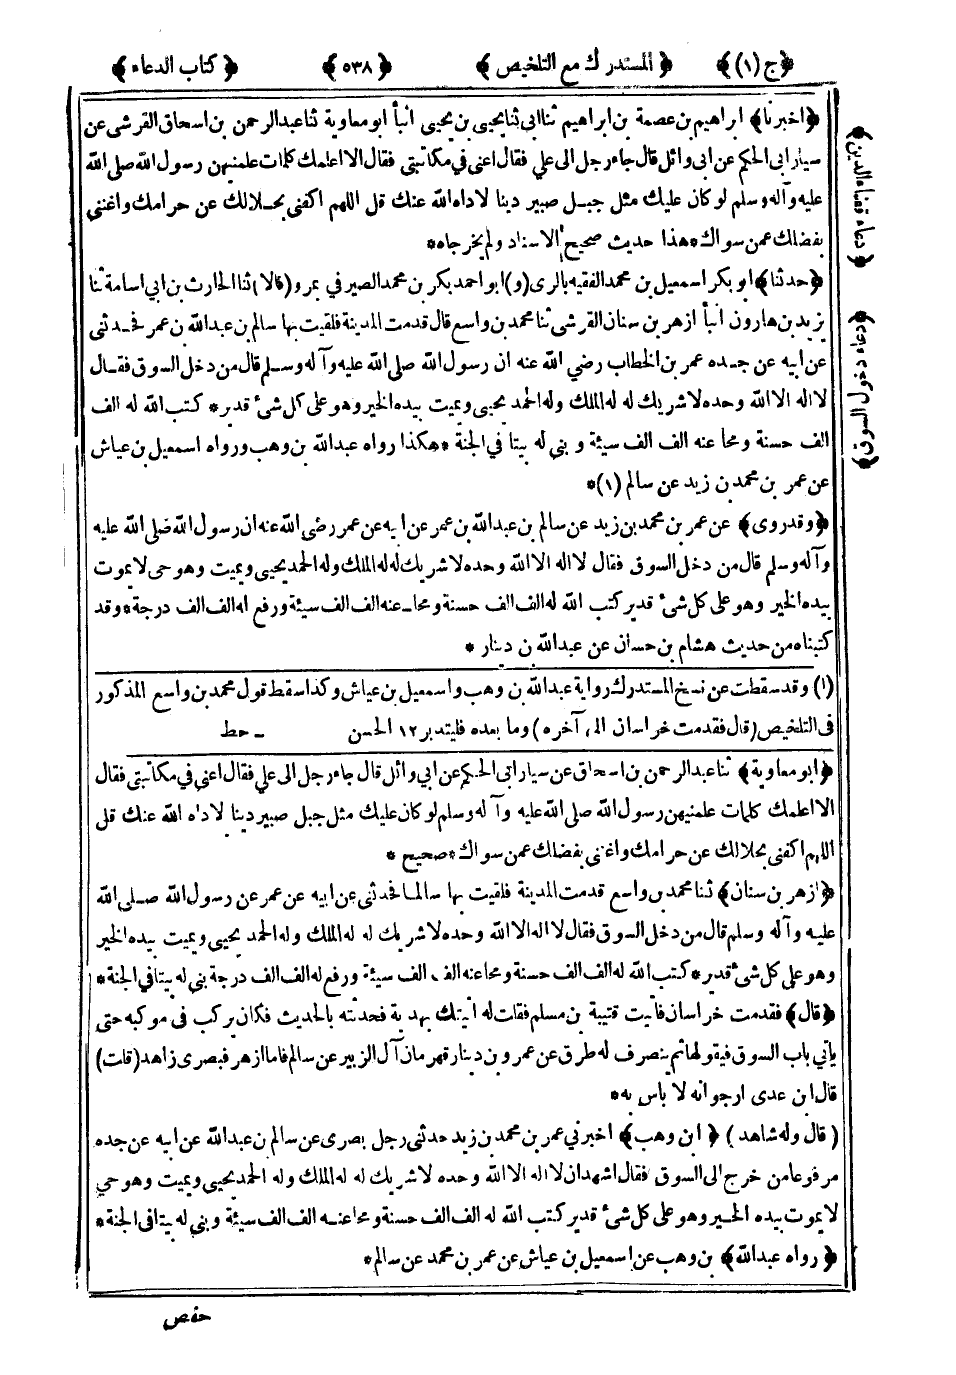 ﴿ج (١)﴾ ﴿المستدرك مع التلخيص﴾ ﴿٥٣٨﴾ ﴿كتاب الدعاء﴾
﴿اخبرنا﴾ ابراهيم بن عصمة بن ابراهيم ثنا ابى ثنا يحيى بن يحيى انبأ ابو معاوية ثنا عبد الرحمن بن اسحاق القرشى عن
سيار ابى الحكم عن ابى وائل قال جاء رجل الى على فقال اعنى في مكاتبتى فقال الا اعلمك كلمات علمنيهن رسول الله صلى الله
عليه وآله وسلم لو كان عليك مثل جبل صبير دينا لاداه الله عنك قل اللهم اكفنى بحلالك عن حرامك واغننى
بفضلك عمن سواك * هذا حديث صحيح الاسناد ولم يخرجاه *
﴿حدثنا﴾ ابو بكر اسمعيل بن محمد الفقيه بالرى (و) ابو احمد بكر بن محمد الصيرفي بمرو (قالا) ثنا الحارث بن ابى اسامة ثنا
يزيد بن هارون انبأ ازهر بن سنان القرشى ثنا محمد بن واسع قال قدمت المدينة فلقيت بها سالم بن عبد الله بن عمر فحدثنى
عن ابيه عن جده عمر بن الخطاب رضي الله عنه ان رسول الله صلى الله عليه وآله وسلم قال من دخل السوق فقال
لا اله الا الله وحده لا شريك له له الملك وله الحمد يحيى ويميت بيده الخير وهو على كل شئ قدير * كتب الله له الف
الف حسنة ومحا عنه الف الف سيئة وبنى له بيتا في الجنة * هكذا رواه عبد الله بن وهب ورواه اسمعيل بن عياش
عن عمر بن محمد بن زيد عن سالم (١) *
﴿وقد روى﴾ عن عمر بن محمد بن زيد عن سالم بن عبد الله بن عمر عن ابيه عن عمر رضى الله عنه ان رسول الله صلى الله عليه
وآله وسلم قال من دخل السوق فقال لا اله الا الله وحده لا شريك له له الملك وله الحمد يحيى ويميت وهو حى لا يموت
بيده الخير وهو على كل شئ قدير كتب الله له الف الف حسنة ومحا عنه الف الف سيئة ورفع له الف الف درجة * وقد
كتبناه من حديث هشام بن حسان عن عبد الله بن دينار *
(١) وقد سقطت عن نسخ المستدرك رواية عبد الله بن وهب واسمعيل بن عياش وكذا سقط قول محمد بن واسع المذكور
فى التلخيص (قال فقدمت خراسان الى آخره) وما بعده فليتدبر ١٢ الحسن ـ حط
﴿ابو معاوية﴾ ثنا عبد الرحمن بن اسحاق عن سيار ابى الحكم عن ابي وائل قال جاء رجل الى على فقال اعنى في مكاتبتى فقال
الا اعلمك كلمات علمنيهن رسول الله صلى الله عليه وآله وسلم لو كان عليك مثل جبل صبير دينا لاداه الله عنك قل
اللهم اكفنى بحلالك عن حرامك واغننى بفضلك عمن سواك * صحيح *
﴿ازهر بن سنان﴾ ثنا محمد بن واسع قدمت المدينة فلقيت بها سالما فحدثنى عن ابيه عن عمر عن رسول الله صلى الله
عليه وآله وسلم قال من دخل السوق فقال لا اله الا الله وحده لا شريك له له الملك وله الحمد يحيى ويميت بيده الخير
وهو على كل شئ قدير * كتب الله له الف الف حسنة ومحا عنه الف الف سيئة ورفع له الف الف درجة بنى له بيتا في الجنة *
﴿قال﴾ فقدمت خراسان فأتيت قتيبة بن مسلم فقلت له اتيتك بهدية فحدثته بالحديث فكان يركب فى موكبه حتى
يأتي باب السوق فيقولها ثم ينصرف له طرق عن عمرو بن دينار قهرمان آل الزبير عن سالم فاما ازهر فبصرى زاهد (قلت)
قال ابن عدى ارجو انه لا باس به *
(قال وله شاهد) ﴿ابن وهب﴾ اخبرني عمر بن محمد بن زيد حدثنى رجل بصرى عن سالم بن عبد الله عن ابيه عن جده
مرفوعا من خرج الى السوق فقال اشهد ان لا اله الا الله وحده لا شريك له له الملك وله الحمد يحيى ويميت وهو حي
لا يموت بيده الخير وهو على كل شئ قدير كتب الله له الف الف حسنة ومحا عنه الف الف سيئة وبنى له بيتا فى الجنة *
﴿رواه عبد الله﴾ بن وهب عن اسمعيل بن عياش عن عمر بن محمد عن سالم *
حفص
﴿دعاء قضاء الدين﴾
﴿دعاء دخول السوق﴾